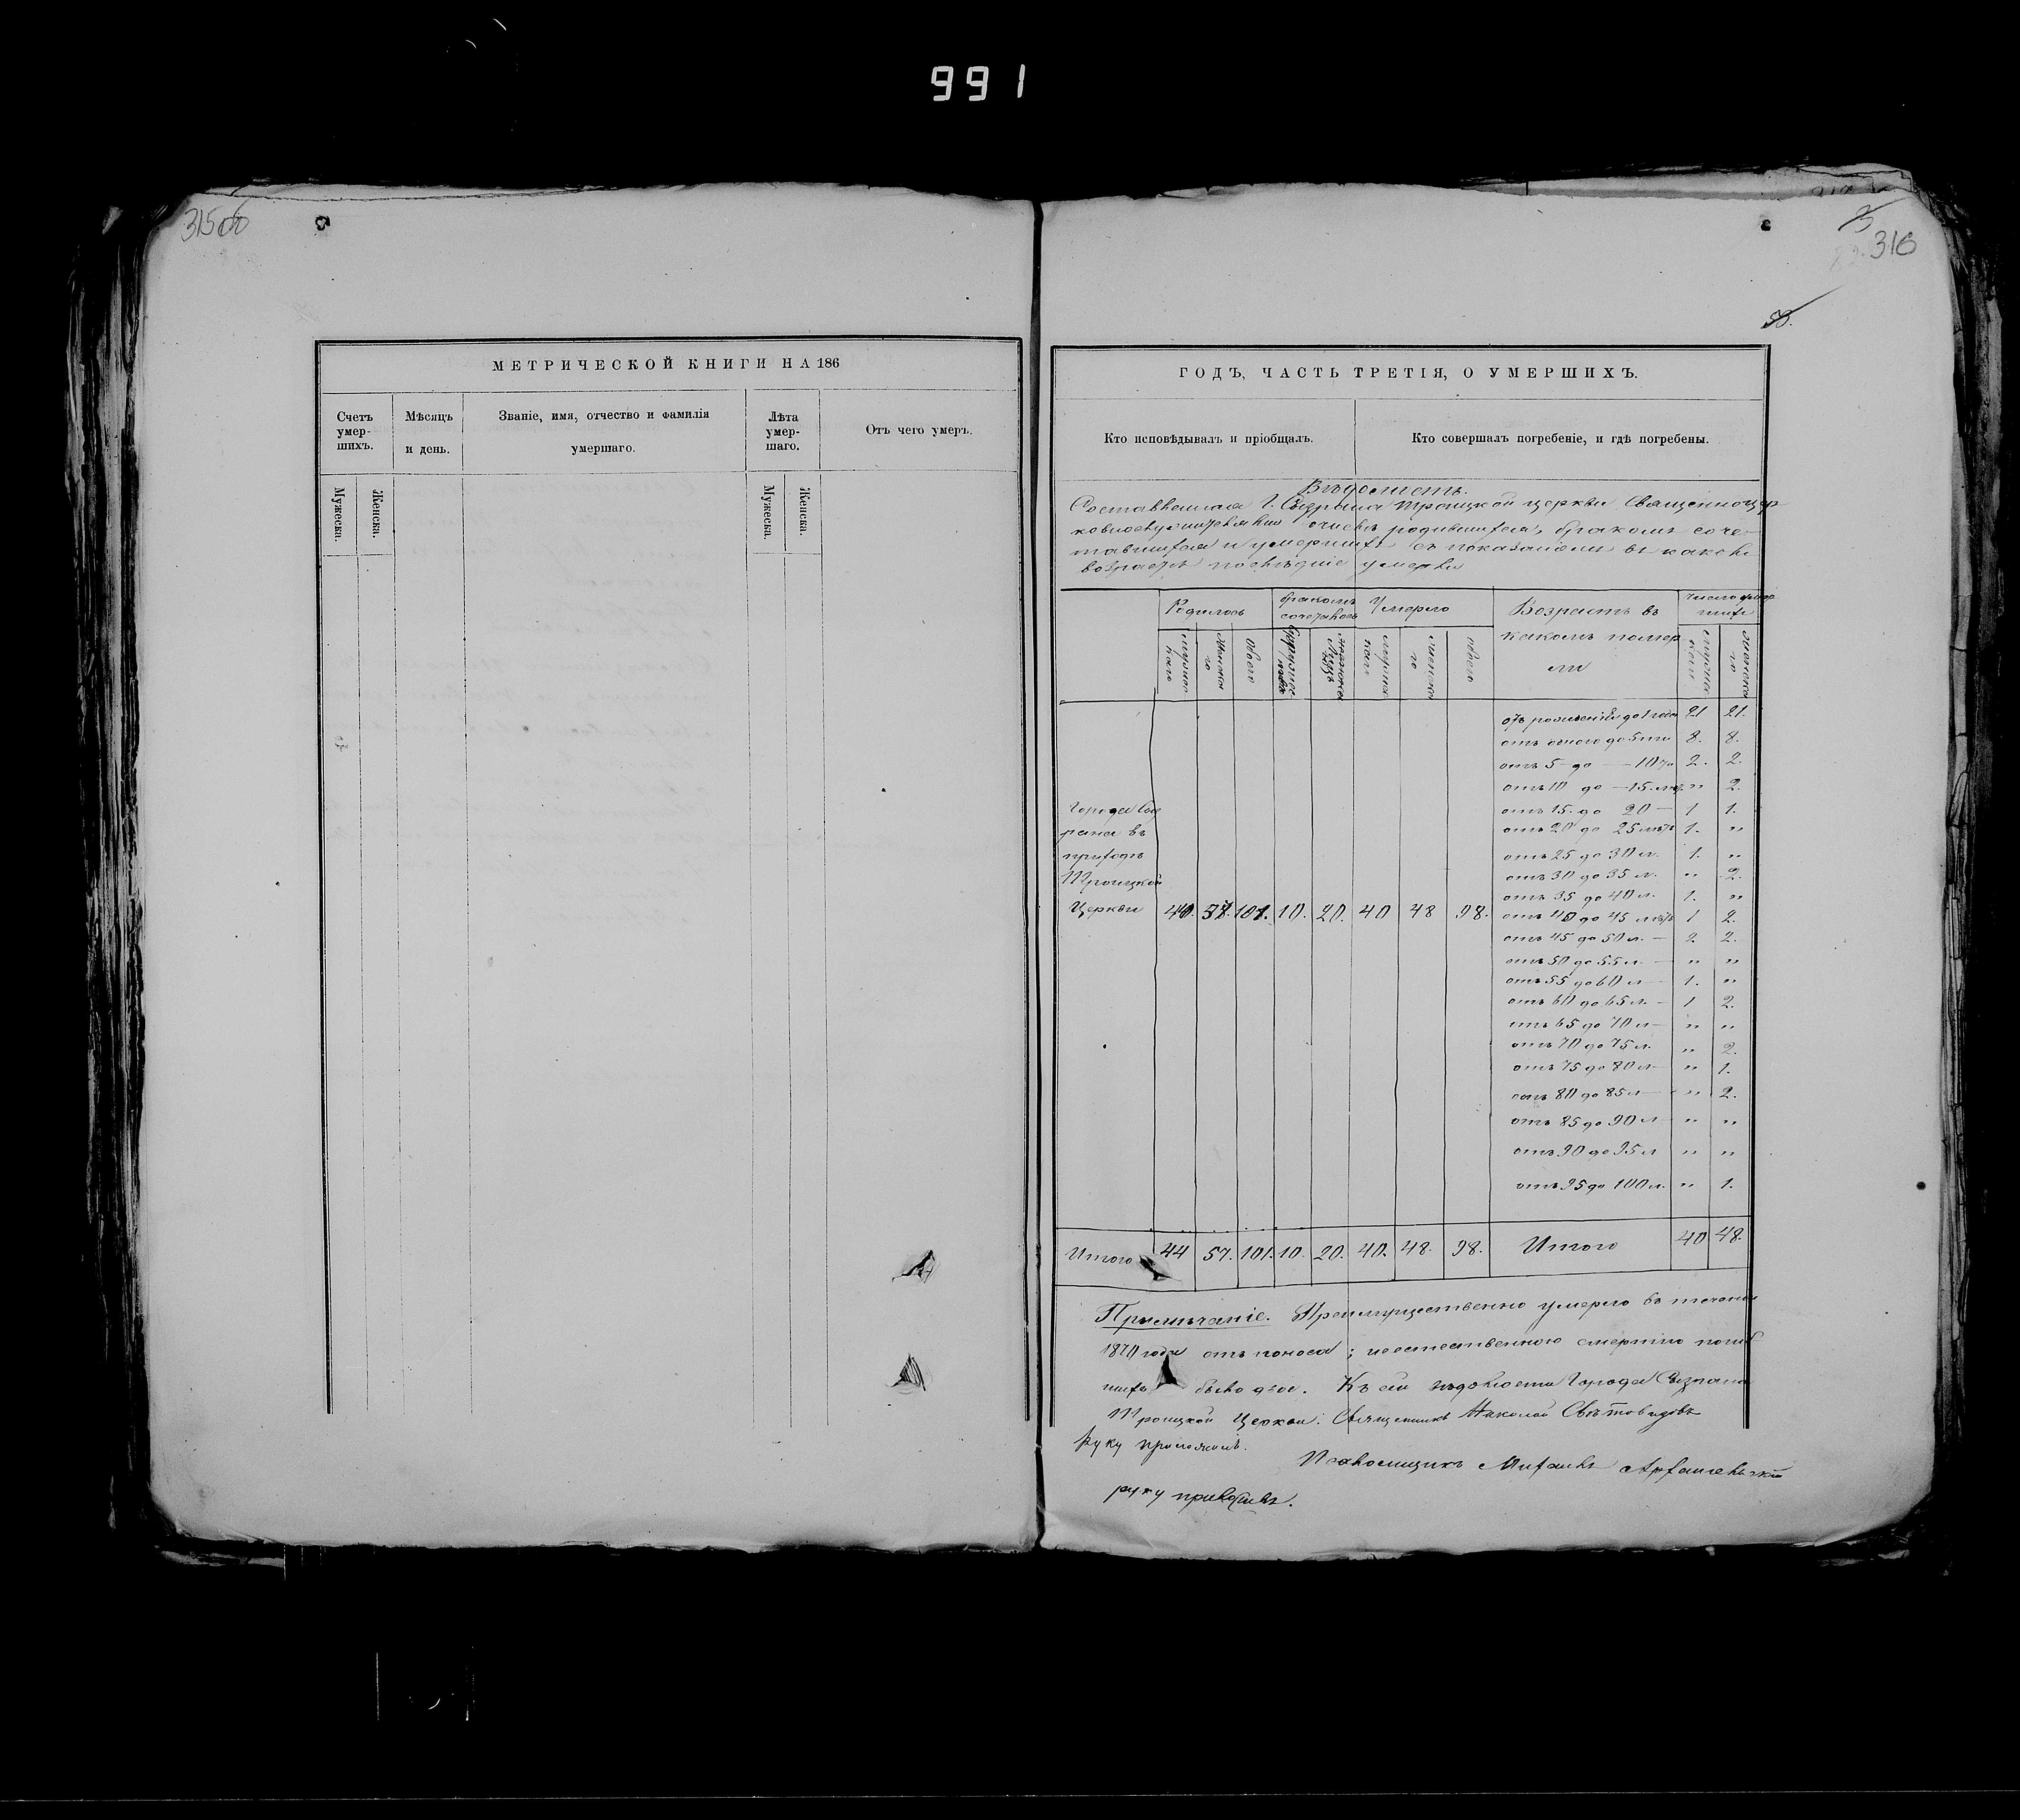 991
315об
3
316
58.
МЕТРИЧЕСКОЙ КНИГИ НА 186
Счетъ умер-шихъ.
Мѣсяцъ и день.
Званіе, имя, отчество и фамилія умершаго.
Лѣта умер-шаго.
Отъ чего умеръ.
Мужеска.
Женска.
Мужеска.
Женска.
ГОДЪ, ЧАСТЬ ТРЕТІЯ, О УМЕРШИХЪ.
Кто исповѣдывалъ и пріобщалъ.
Кто совершалъ погребеніе, и гдѣ погребены.
Вѣдомость.
Составленная Г. Сызрана Троицкой церкви Священноцер
ковнослужителями о числѣ родившихся, бракомъ соче-
тавшихся и умершихъ съ показаніемъ въ какомъ
возрастѣ послѣдніе умерли
Родилось
бракомъ сочеталось
Умерло
Возрастъ въ какомъ помер ли
число умер шихъ
обоего
обоего
отъ рожденія до 1 года 21 21.
отъ одного до 5ти 8. 8.
отъ 5 до — 10 2. 2.
отъ 10 до — 15 " 2.
отъ 15 до 20 — 1 1.
отъ 20 до 25 лѣтъ 1. "
отъ 25 до 30 л. 1. "
отъ 30 до 35 л. " 2.
отъ 35 до 40 л. 1. "
отъ 40 до 45 лѣтъ 1 2.
отъ 45 до 50 л. — 2 2.
отъ 50 до 55 л — " "
отъ 55 до 60 л — 1. "
отъ 60 до 65 л. — 1 2.
отъ 65 до 70 л — " "
отъ 70 до 75 л. " 2.
отъ 75 до 80 л — " 1.
отъ 80 до 85 л — " 2.
отъ 85 до 90 л " "
отъ 90 до 95 л " "
отъ 95 до 100 л. " 1.
Города Сыз
рана въ
приходѣ
Троицкой
Церкви 101. 10. 20. 40 48 98.
Итого 44 57. 101. 10. 20. 40. 48. 98. Итого 40 48.
Примѣчаніе. Преимущественно умерло въ теченіи
1870 года отъ поноса; неестественною смертію погиб
шихъ было двое. Къ сей вѣдомости Города Сызрана
Троицкой Церкви. Священникъ Николай Свѣтовидовъ
руку приложилъ.
Псаломщикъ Михаилъ Архангельскій
руку приложилъ.